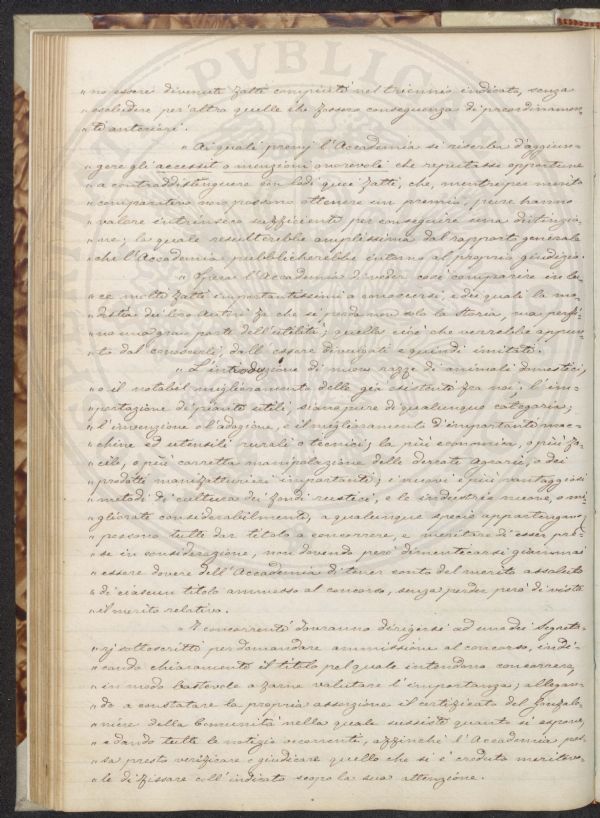 " no essere divenuti fatti compiuti nel triennio indicato, senza
" escludere per altro quelle che fossero conseguenza di preordinamen-
" ti anteriori.
" Ai quali premj l'Accademia si riserba d'aggiun-
" gere gli accessit o menzioni onorevoli che reputasse opportune
" a contraddistinguere con lodi quei fatti, che, mentre per merito
" comparativo non possano ottenere un premio, pure hanno
" valore intrinseco sufficiente per conseguire una distinzio-
" ne; la quale resulterebbe amplissima dal rapporto generale
" che l'Accademia pubblicherebbe intorno al proprio giudizio.
" Spera l'Accademia di veder così comparire in lu-
" ce molti fatti importantissimi a conoscersi, e dei quali la mo-
" destia dei loro autori fa che si perda non solo la storia, ma perfi-
" no una gran parte dell'utilità; quella cioè che verrebbe appun-
" to dal conoscerli, dall'essere divulgati e quindi imitati.
" L'introduzione di nuove razze di animali domestici,
" o il notabil miglioramento delle già esistenti fra noi; l'im-
" portazione di piante utili, siano pure di qualunque categoria;
" l'invenzione o l'adozione, e il miglioramento d'importanti mac-
" chine ed utensili rurali o tecnici; la più economica, o più fa-
" cile, o più corretta manipolazione delle derrate agrarie, o dei
" prodotti manifatturieri importanti; i nuovi e più vantaggiosi
" metodi di cultura dei fondi rustici, e le industrie nuove o mi-
" gliorate considerabilmente, a qualunque specie appartengano,
" possono tutte dar titolo a concorrere, e meritare di esser pre-
" se in considerazione, non dovendo però dimenticarsi giammai
" essere dovere dell'Accademia di tener conto del merito assoluto
" di ciascun titolo ammesso al concorso, senza perder però di vista
" il merito relativo.
" I concorrenti dovranno dirigersi ad uno dei Segreta-
" rj sottoscritti per domandare ammissione al concorso, indi-
" cando chiaramente il titolo pel quale intendono concorrere,
" in modo bastevole a farne valutare l'importanza; allegan-
" do a constatare la propria asserzione il certificato del Gonfalo-
" niere della Comunità nella quale sussiste quanto si espone,
" e dando tutte le notizie occorrenti, affinchè l'Accademia pos-
" sa presto verificare e giudicare quello che si è creduto meritevo-
" le di fissare coll'indicato scopo la sua attenzione.